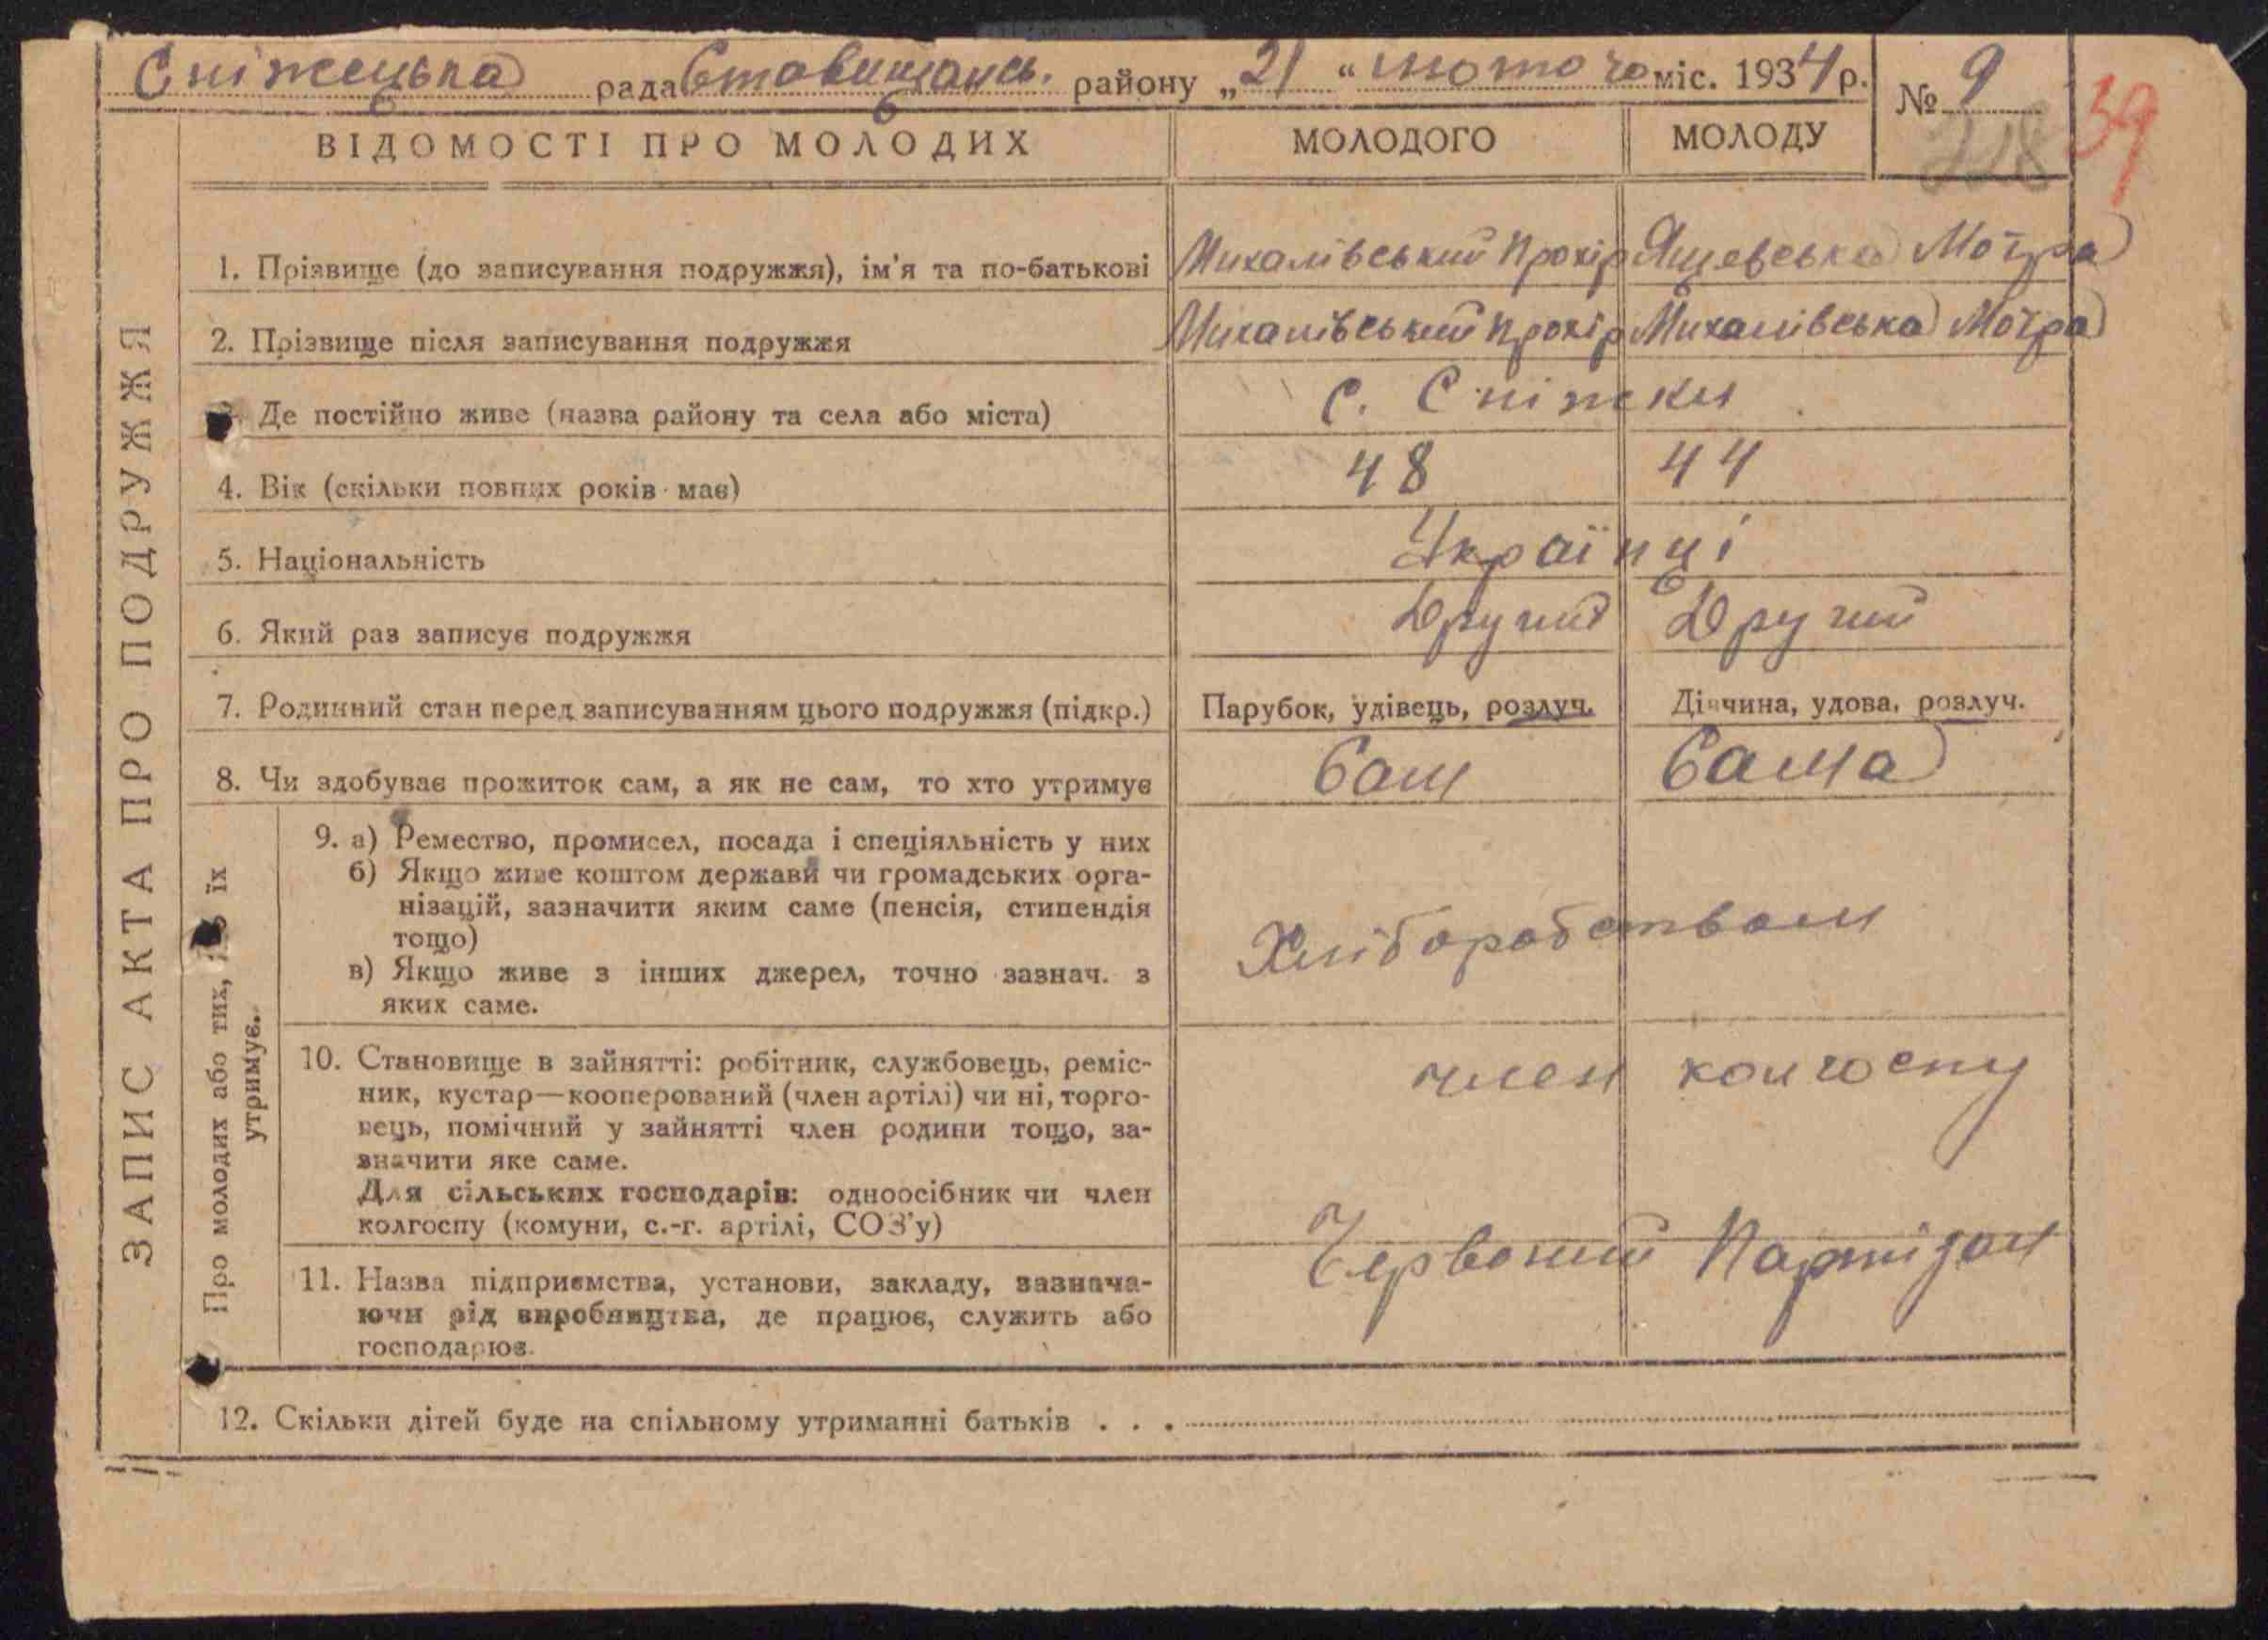 Сніжецька рада Ставищанськ. району „21“ лютого міс. 1934 р. № 9
39
228
ВІДОМОСТІ ПРО МОЛОДИХ МОЛОДОГО МОЛОДУ
ЗАПИС АКТА ПРО ПОДРУЖЖЯ
1. Прізвище (до записування подружжя), ім'я та по-батькові Михалівський Прохір Ящевська Мотра
2. Прізвище після записування подружжя Михалівський Прохір Михалівська Мотра
Де постійно живе (назва району та села або міста) с. Сніжки
4. Вік (скільки повних років має) 48 44
5. Національність Українці
6. Який раз записує подружжя Другий Другий
7. Родинний стан перед записуванням цього подружжя (підкр.) Парубок, удівець, розлуч. Дівчина, удова, розлуч.
8. Чи здобуває прожиток сам, а як не сам, то хто утримує Сам Сама
Про молодих або тих, їх
утримує.
9. а) Ремество, промисел, посада і спеціяльність у них
б) Якщо живе коштом держави чи громадських орга-
нізацій, зазначити яким саме (пенсія, стипендія
тощо)
в) Якщо живе з інших джерел, точно зазнач. з
яких саме.
Хліборобством
10. Становище в зайнятті: робітник, службовець, реміс-
ник, кустар—кооперований (член артілі) чи ні, торго-
вець, помічний у зайнятті член родини тощо, за-
значити яке саме.
Для сільських господарів: одноосібник чи член
колгоспу (комуни, с.-г. артілі, СОЗ'у)
член колгоспу
11. Назва підприємства, установи, закладу, зазнача-
ючи рід виробництва, де працює, служить або
господарює.
Червоний Партізан
12. Скільки дітей буде на спільному утриманні батьків . . .